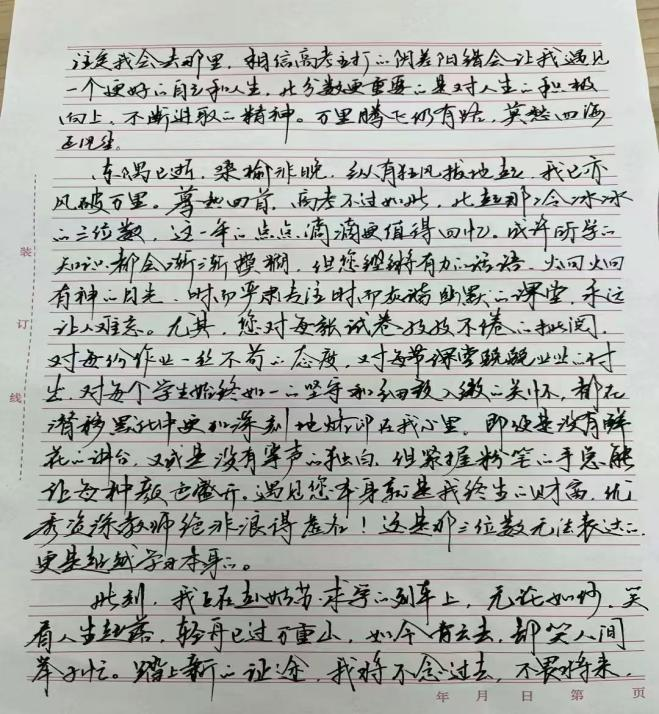 注定我会去那里，相信高考主打的阴差阳错会让我遇见
一个更好的自己和人生，比分数更重要的是对人生的积极
向上，不断进取的精神。万里腾飞仍有路，莫愁四海
正风尘。
东隅已逝，桑榆非晚，纵有狂风拔地起，我已亦
风破万里。蓦然回首，高考不过如此，比起那个冷冰冰
的三位数，这一年的点点滴滴更值得回忆。或许所学的
知识都会渐渐模糊，但您铿锵有力的话语，炯炯
有神的目光，时而严肃专注时而灰谐幽默的课堂，永远
让人难忘。尤其，您对每张试卷孜孜不倦的批阅，
对每份作业一丝不苟的态度，对每节课堂兢兢业业的付
出，对每个学生始终如一的坚守和细致入微的关怀，都在
潜移默化中更加深刻地烙印在我心里。即使是没有鲜
花的讲台，又或是没有掌声的独白，但紧握粉笔的手总能
让每种 也盛开。遇见您本身就是我终生的财富，优
秀资深教师绝非浪得虚名！这是那三位数无法表达的
更是超越学习本身的。
此刻，我正在赴姑苏求学的列车上，无论如何，笑
看人生起落，轻舟已过万重山，如今 去，却笑人间
举子忙。踏上新的征途，我将不念过去，不畏将来，
装
订
线
年 月 日 第 页